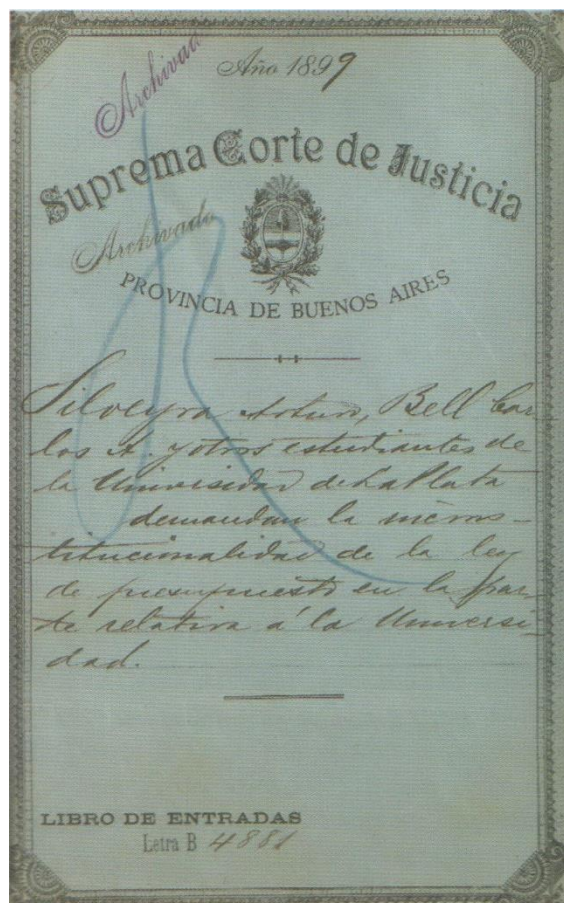 Archivado
Año 1899
Suprema Corte de Justicia
Archivado
PROVINCIA DE BUENOS AIRES
Silveyra Arturo, Bell Car-
los A. y otros estudiantes de
la Universidad de La Plata
demandan la incons-
titucionalidad de la ley
de presupuesto en la par-
te relativa á la Universi-
dad.
LIBRO DE ENTRADAS
Letra B 4881